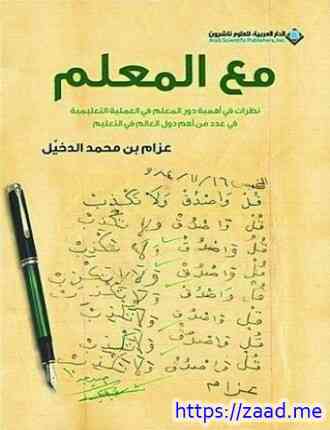 الدار العربية للعلوم ناشرون
Arab Scientific Publishers, Inc.
مع المعلم
نظرات في أهمية دور المعلم في العملية التعليمية
في عدد من أهم دول العالم في التعليم
عزام بن محمد الدخيّل
قُلْ وَاصْدُقْ وَلَا تَكْذِبْ
قُلْ وَاصْدُقْ وَلَا تَكْذِبْ
قُلْ وَاصْدُقْ وَلَا تَكْذِبْ
قُلْ وَاصْدُقْ وَلَا تَكْذِبْ
قُلْ وَاصْدُقْ وَلَا تَكْذِبْ
قُلْ وَاصْدُقْ وَلَا تَكْذِبْ
قُلْ وَاصْدُقْ وَلَا تَكْذِبْ
قُلْ وَاصْدُقْ وَلَا تَكْذِبْ
عزام
https://zaad.me